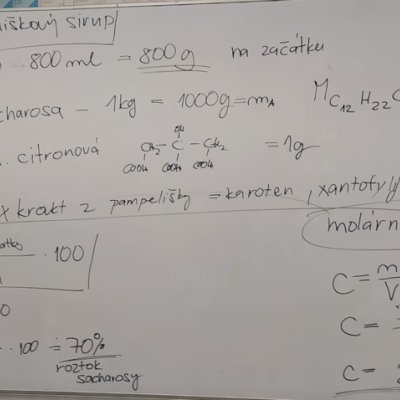 iškový sirup
800 ml = 800 g na začátku
charosa - 1kg = 1000g = mA MC12H22
citronová CH2 - C - CH2 = 1g
OH
COOH COOH COOH
xkrakt z pampelišky = karoten, xantofyly
molárn
· 100
C = m
V
0
C =
· 100 ≐ 70%
roztok
sacharosy
C =